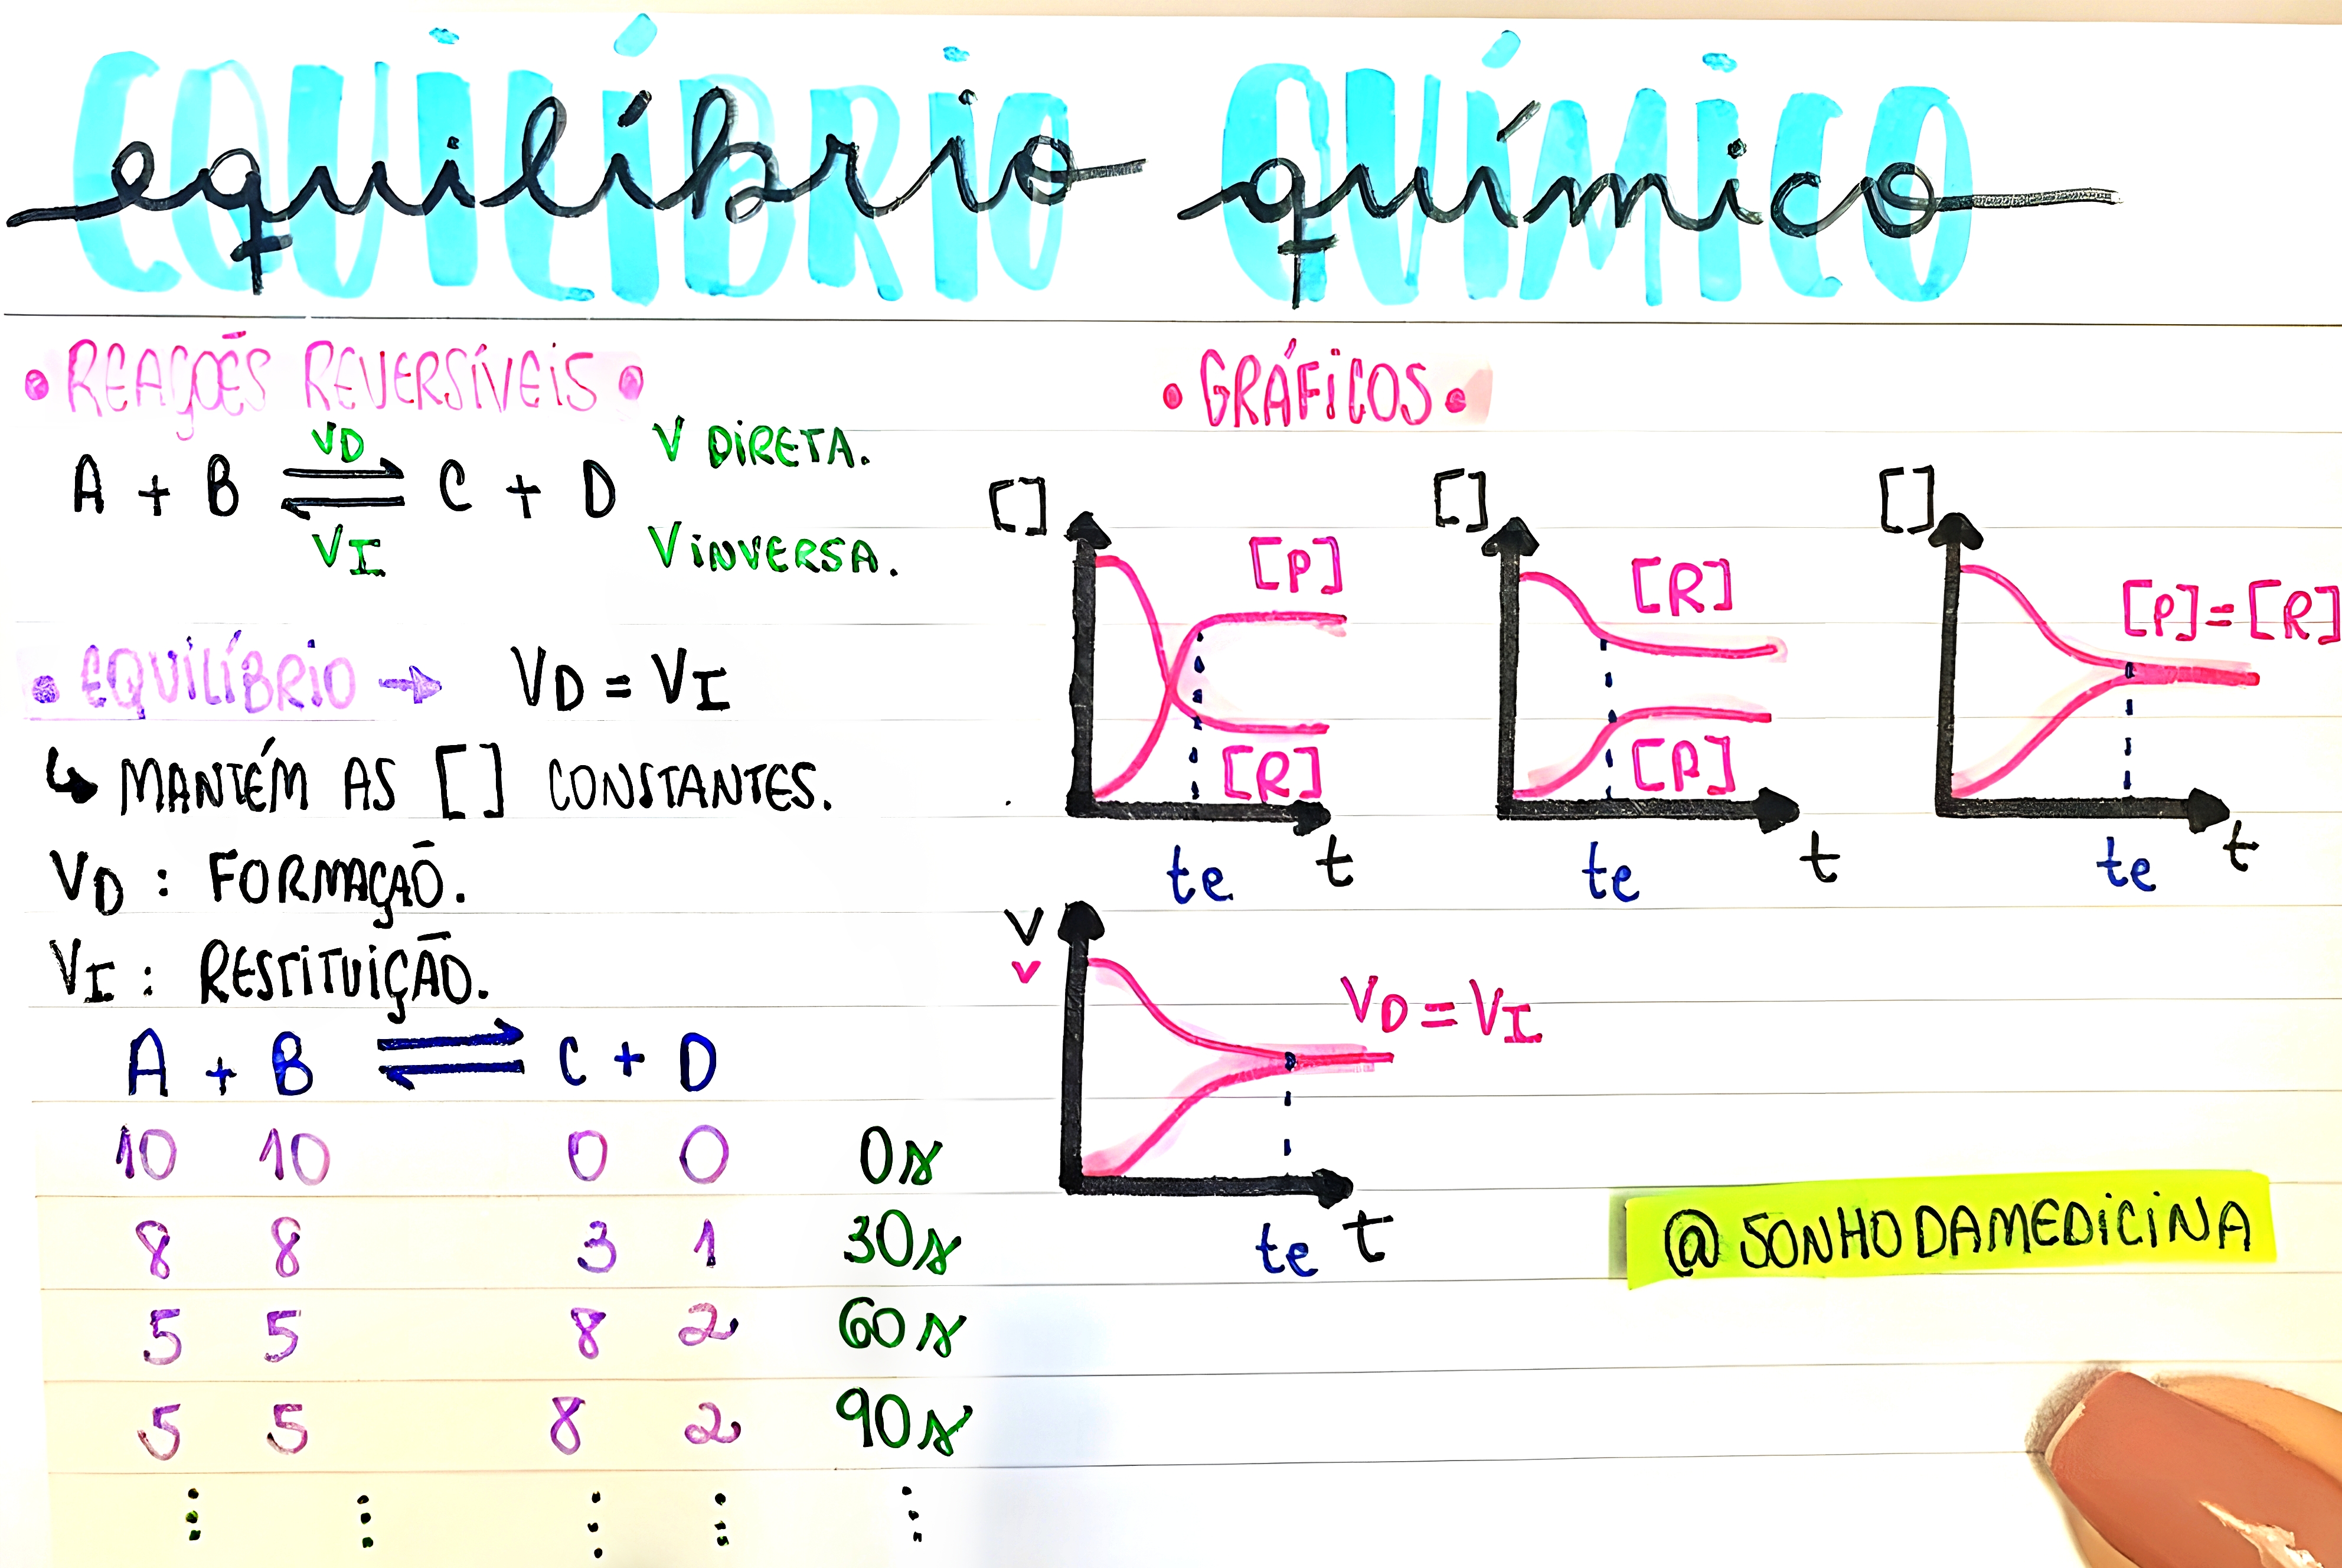 EQUILÍBRIO QUÍMICO
equilíbrio químico
• REAÇÕES REVERSÍVEIS •
VD
V DIRETA.
A + B ⇌ C + D
VI
V INVERSA.
• EQUILÍBRIO → VD = VI
↳ MANTÉM AS [ ] CONSTANTES.
VD : FORMAÇÃO.
VI : RESTITUIÇÃO.
A + B ⇌ C + D
10 10 0 0 0s
8 8 3 1 30s
5 5 8 2 60s
5 5 8 2 90s
⋮ ⋮ ⋮ ⋮ ⋮
• GRÁFICOS •
[ ]
[P]
[R]
te t
[ ]
[R]
[P]
te t
[ ]
[P]=[R]
te t
V
v
VD = VI
te t
@SONHODAMEDICINA